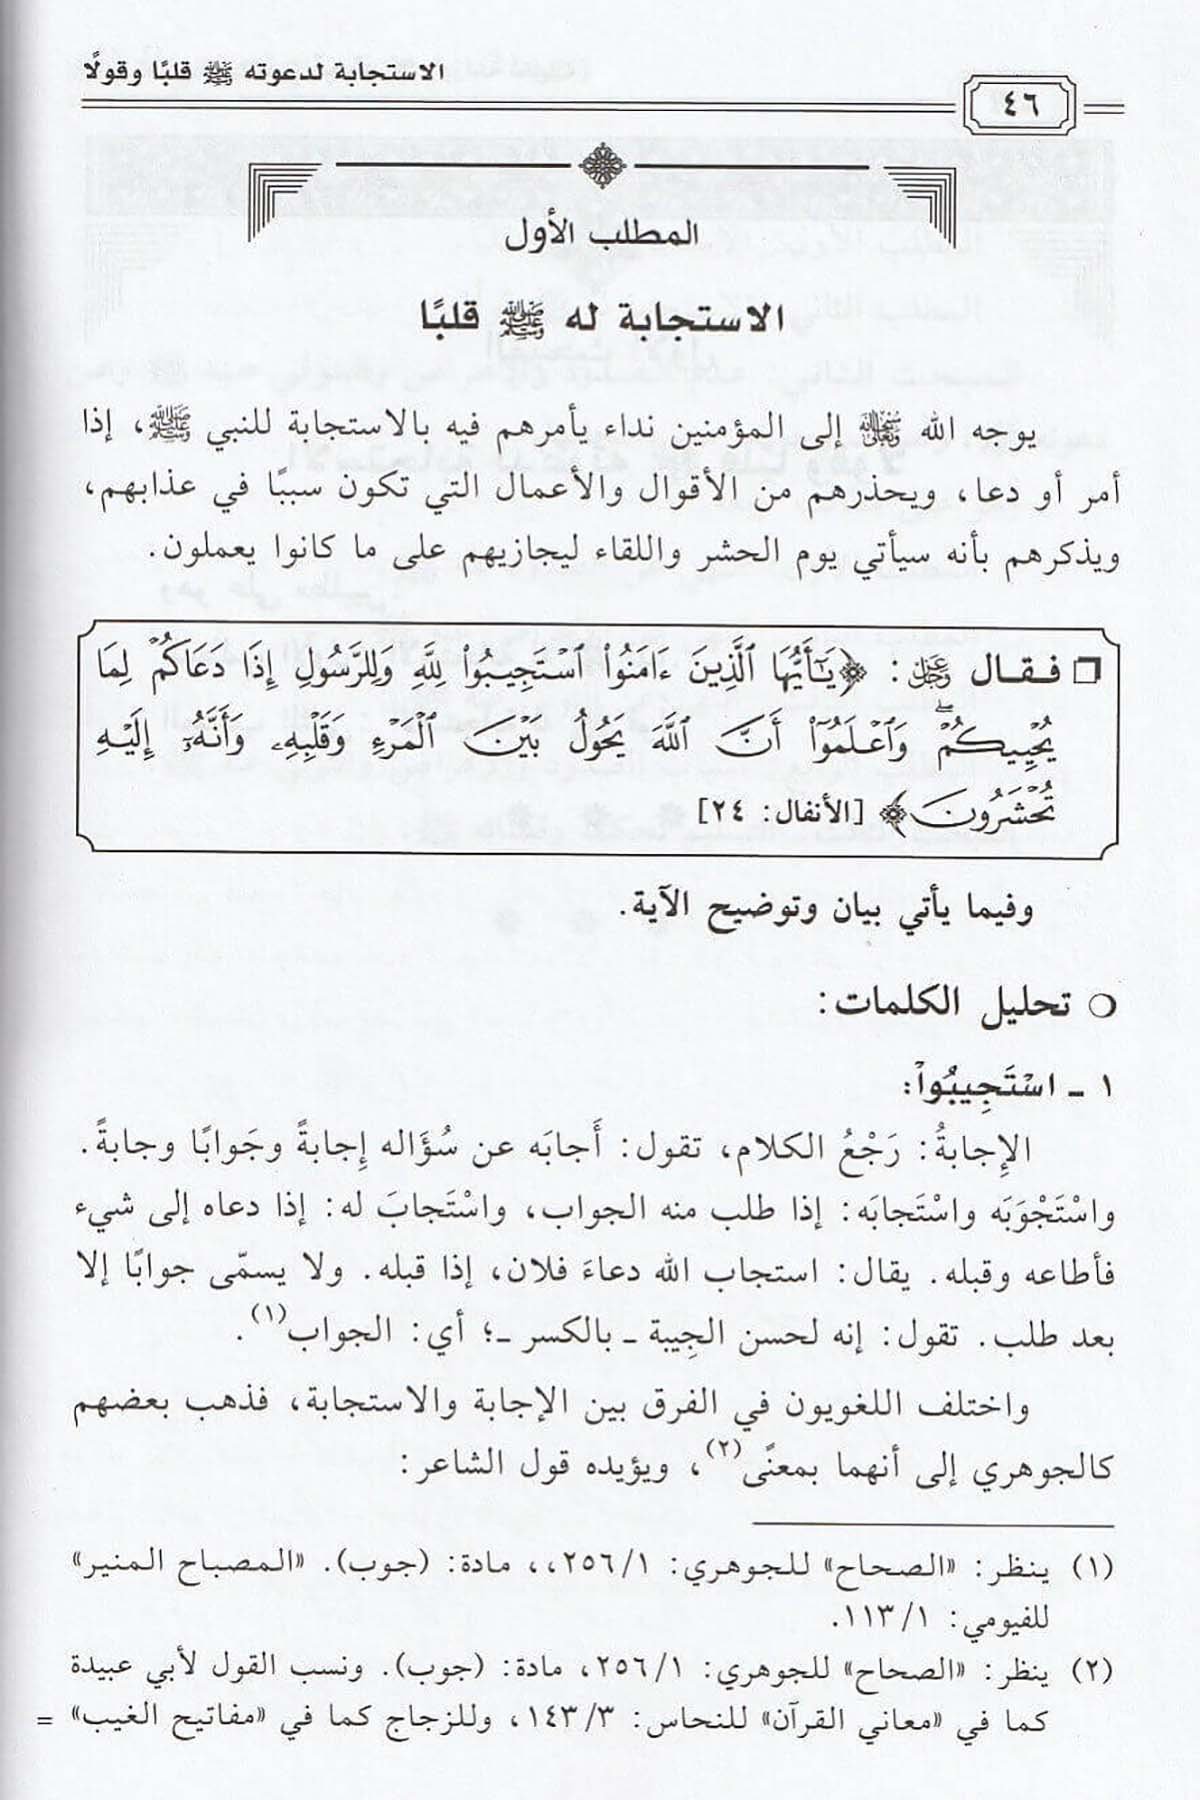 الاستجابة لدعوته ﷺ قلبًا وقولًا
٤٦
المطلب الأول
الاستجابة له ﷺ قلبًا
يوجه الله ﷾ إلى المؤمنين نداء يأمرهم فيه بالاستجابة للنبي ﷺ، إذا
أمر أو دعا، ويحذرهم من الأقوال والأعمال التي تكون سببًا في عذابهم،
ويذكرهم بأنه سيأتي يوم الحشر واللقاء ليجازيهم على ما كانوا يعملون.
❒ فقال ﷿: ﴿يَٰٓأَيُّهَا ٱلَّذِينَ ءَامَنُوا۟ ٱسْتَجِيبُوا۟ لِلَّهِ وَلِلرَّسُولِ إِذَا دَعَاكُمْ لِمَا
يُحْيِيكُمْ ۖ وَٱعْلَمُوٓا۟ أَنَّ ٱللَّهَ يَحُولُ بَيْنَ ٱلْمَرْءِ وَقَلْبِهِۦ وَأَنَّهُۥٓ إِلَيْهِ
تُحْشَرُونَ﴾ [الأنفال: ٢٤]
وفيما يأتي بيان وتوضيح الآية.
❍ تحليل الكلمات:
١ ـ ٱسْتَجِيبُوا۟:
الإِجابةُ: رَجْعُ الكلام، تقول: أَجابَه عن سُؤَاله إِجابةً وجَوابًا وجابةً.
واسْتَجْوَبَه واسْتَجابَه: إذا طلب منه الجواب، واسْتَجابَ له: إذا دعاه إلى شيء
فأطاعه وقبله. يقال: استجاب الله دعاءَ فلان، إذا قبله. ولا يسمّى جوابًا إلا
بعد طلب. تقول: إنه لحسن الجِيبة ـ بالكسر ـ؛ أي: الجواب(١).
واختلف اللغويون في الفرق بين الإجابة والاستجابة، فذهب بعضهم
كالجوهري إلى أنهما بمعنًى(٢)، ويؤيده قول الشاعر:
(١) ينظر: «الصحاح» للجوهري: ١/ ٢٥٦،، مادة: (جوب). «المصباح المنير»
للفيومي: ١/ ١١٣.
(٢) ينظر: «الصحاح» للجوهري: ١/ ٢٥٦، مادة: (جوب). ونسب القول لأبي عبيدة
كما في «معاني القرآن» للنحاس: ٣/ ١٤٣، وللزجاج كما في «مفاتيح الغيب» =